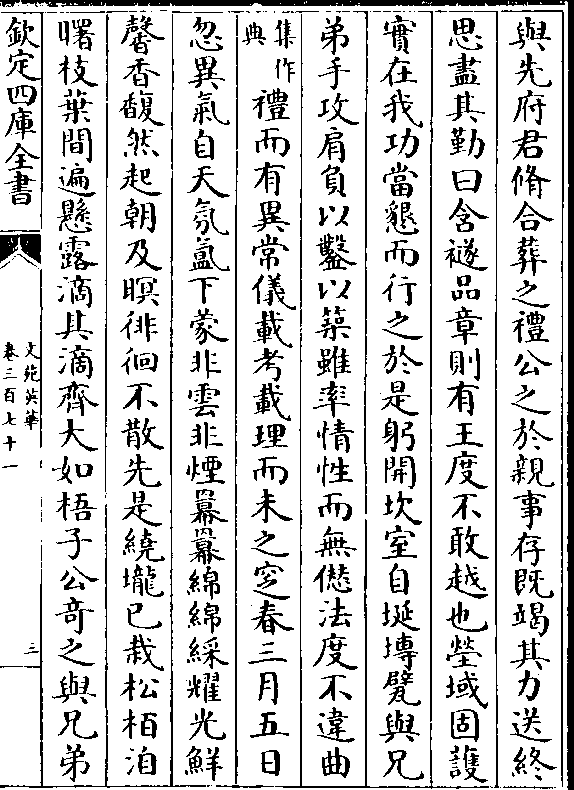 與先府君脩合葬之禮公之於親事存既竭其力送終
思盡其勤曰含襚品章則有王度不敢越也塋域固護
實在我功當懇而行之於是躬開坎室自埏塼甓與兄
弟手攻肩負以鑿以築雖率情性而無僽法度不違曲
集作典禮而有異常儀載考載理而未之窆春三月五日
忽異氣自天氛氳下蒙非雲非煙羃羃綿綿綵耀光鮮
馨香馥然起朝及暝徘徊不散先是繞壠已栽松栢洎
曙枝葉間遍懸露滴其滴齊大如梧子公奇之與兄弟
欽定四庫全書
文苑英華
卷三百七十一
三